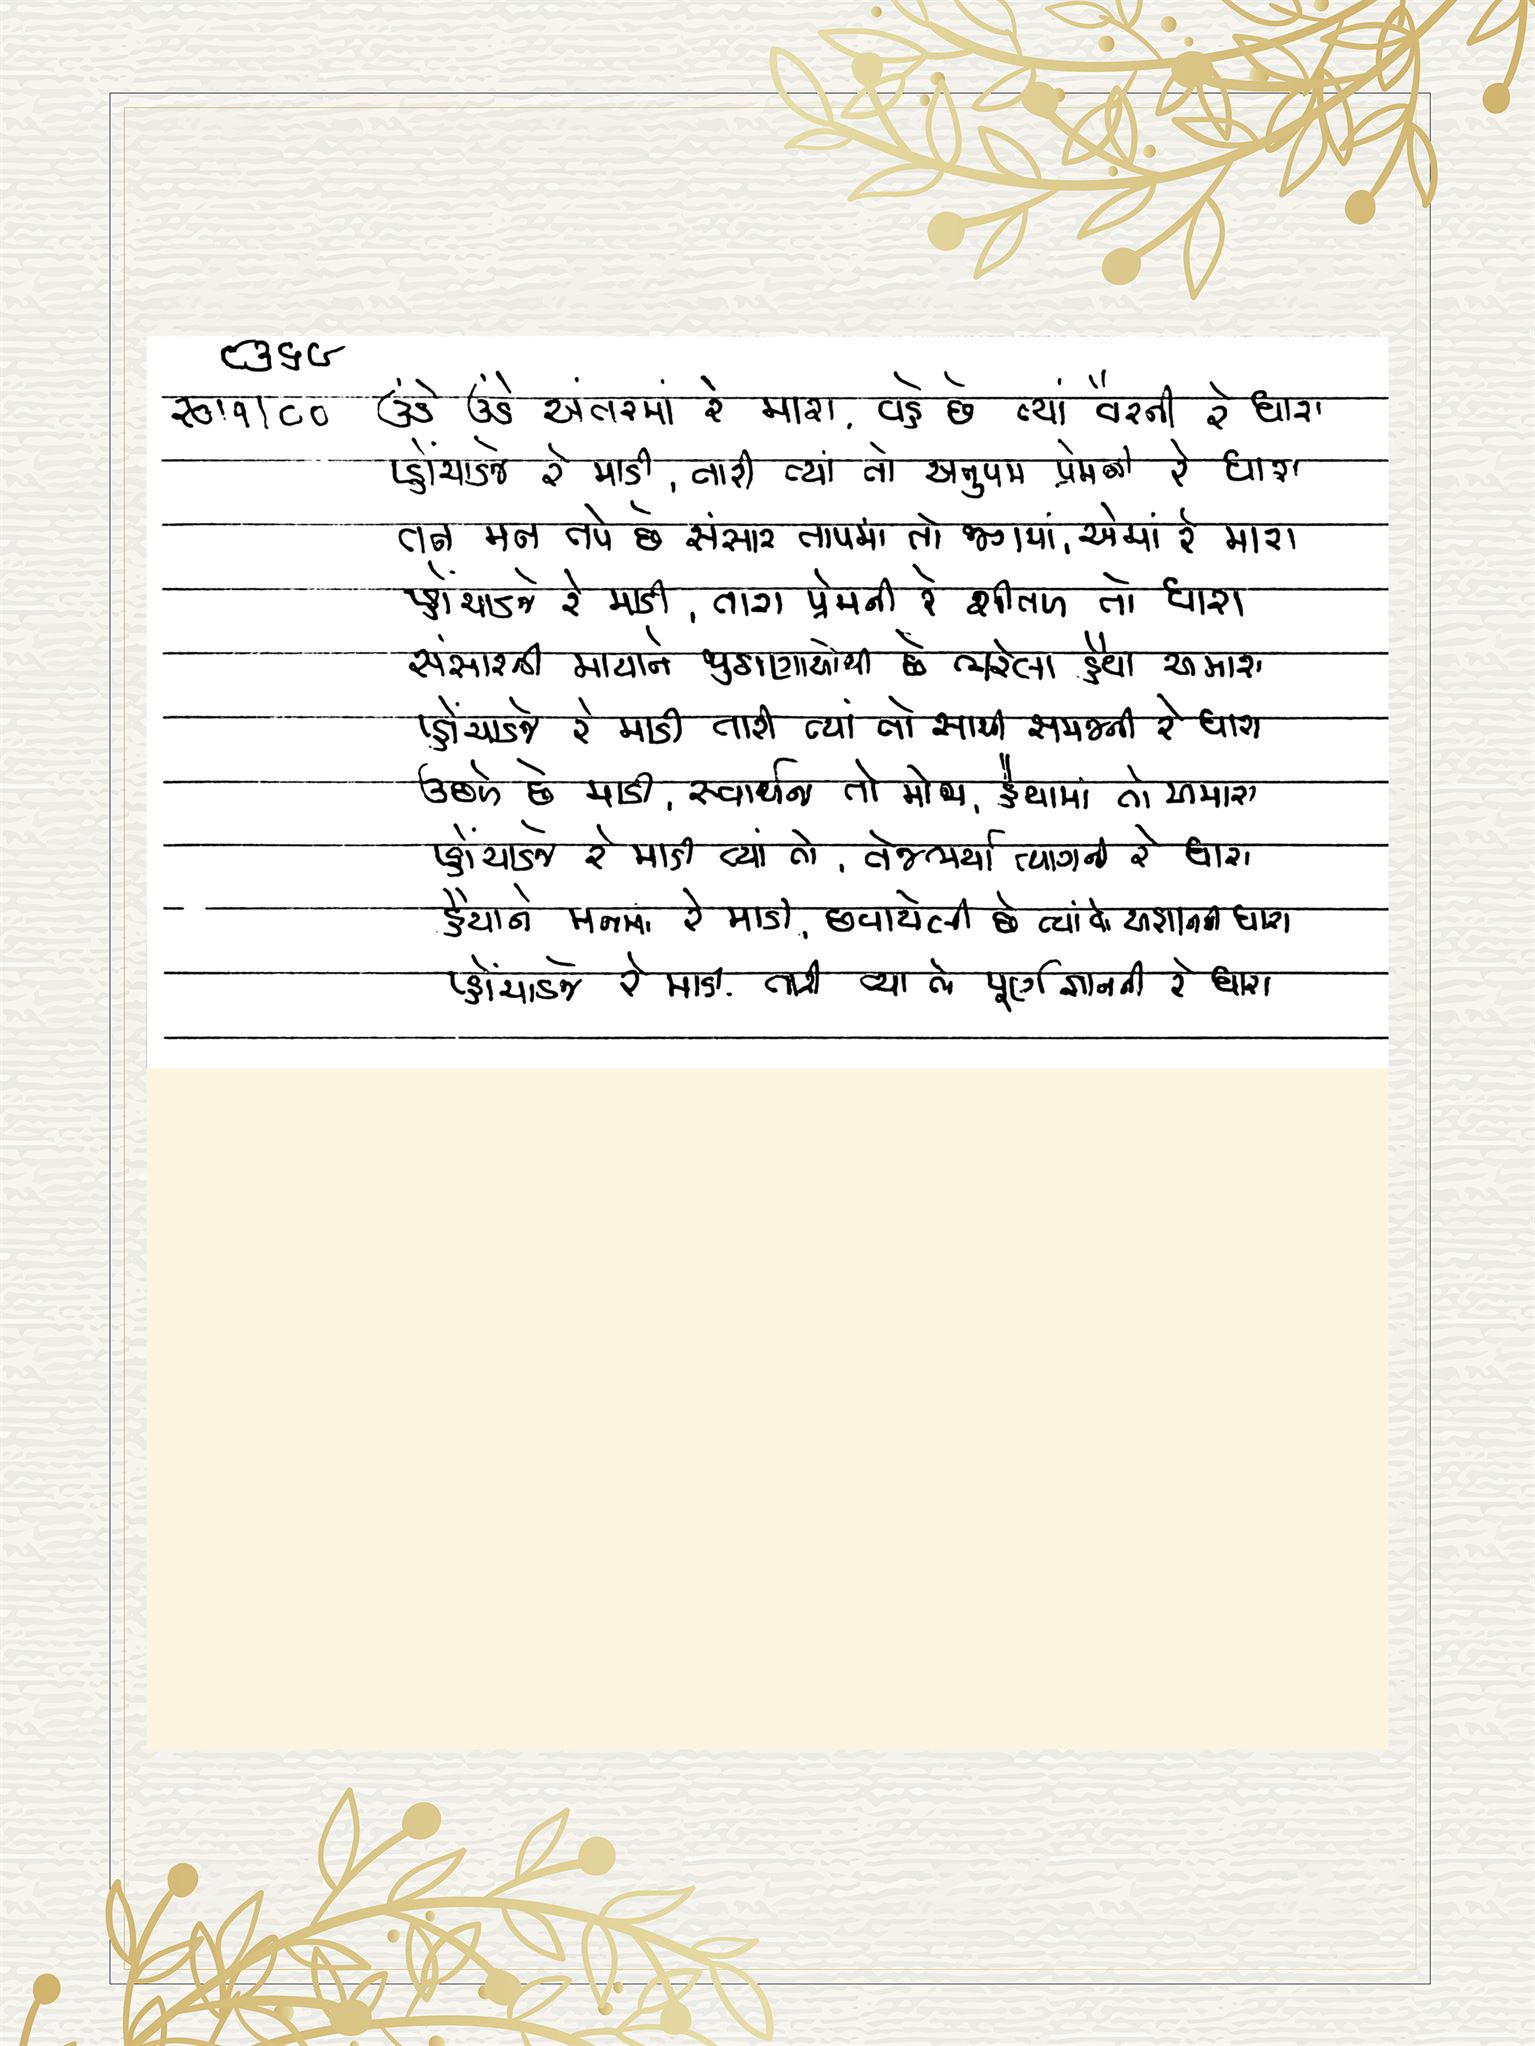 ઊંડે ઊંડે અંતરમાં રે મારા, વહે છે ત્યાં વૈરની રે ધારા
પ્હોંચાડજે રે માડી, તારી ત્યાં તો અનુપમ પ્રેમની રે ધારા
તન મન તપે છે સંસાર તાપમાં તો જગમાં, એમાં રે મારા
પ્હોંચાડજે રે માડી, તારા પ્રેમની રે શીતળ તો ધારા
સંસારની માયાને છે ભરેલા હૈયા અમારા
પ્હોંચાડજે રે માડી તારી ત્યાં તો સાચી સમજની રે ધારા
ઉછળે છે માડી, સ્વાર્થના તો મોજા, હૈયામાં તો અમારા
પ્હોંચાડજે રે માડી ત્યાં તો, તેજભર્યા ત્યાગની રે ધારા
હૈયાને મનમાં રે માડી, છવાયેલી છે ત્યાં ધારા
પ્હોંચાડજે રે માડી. તારી ત્યાં તો પૂર્ણ જ્ઞાનની રે ધારા